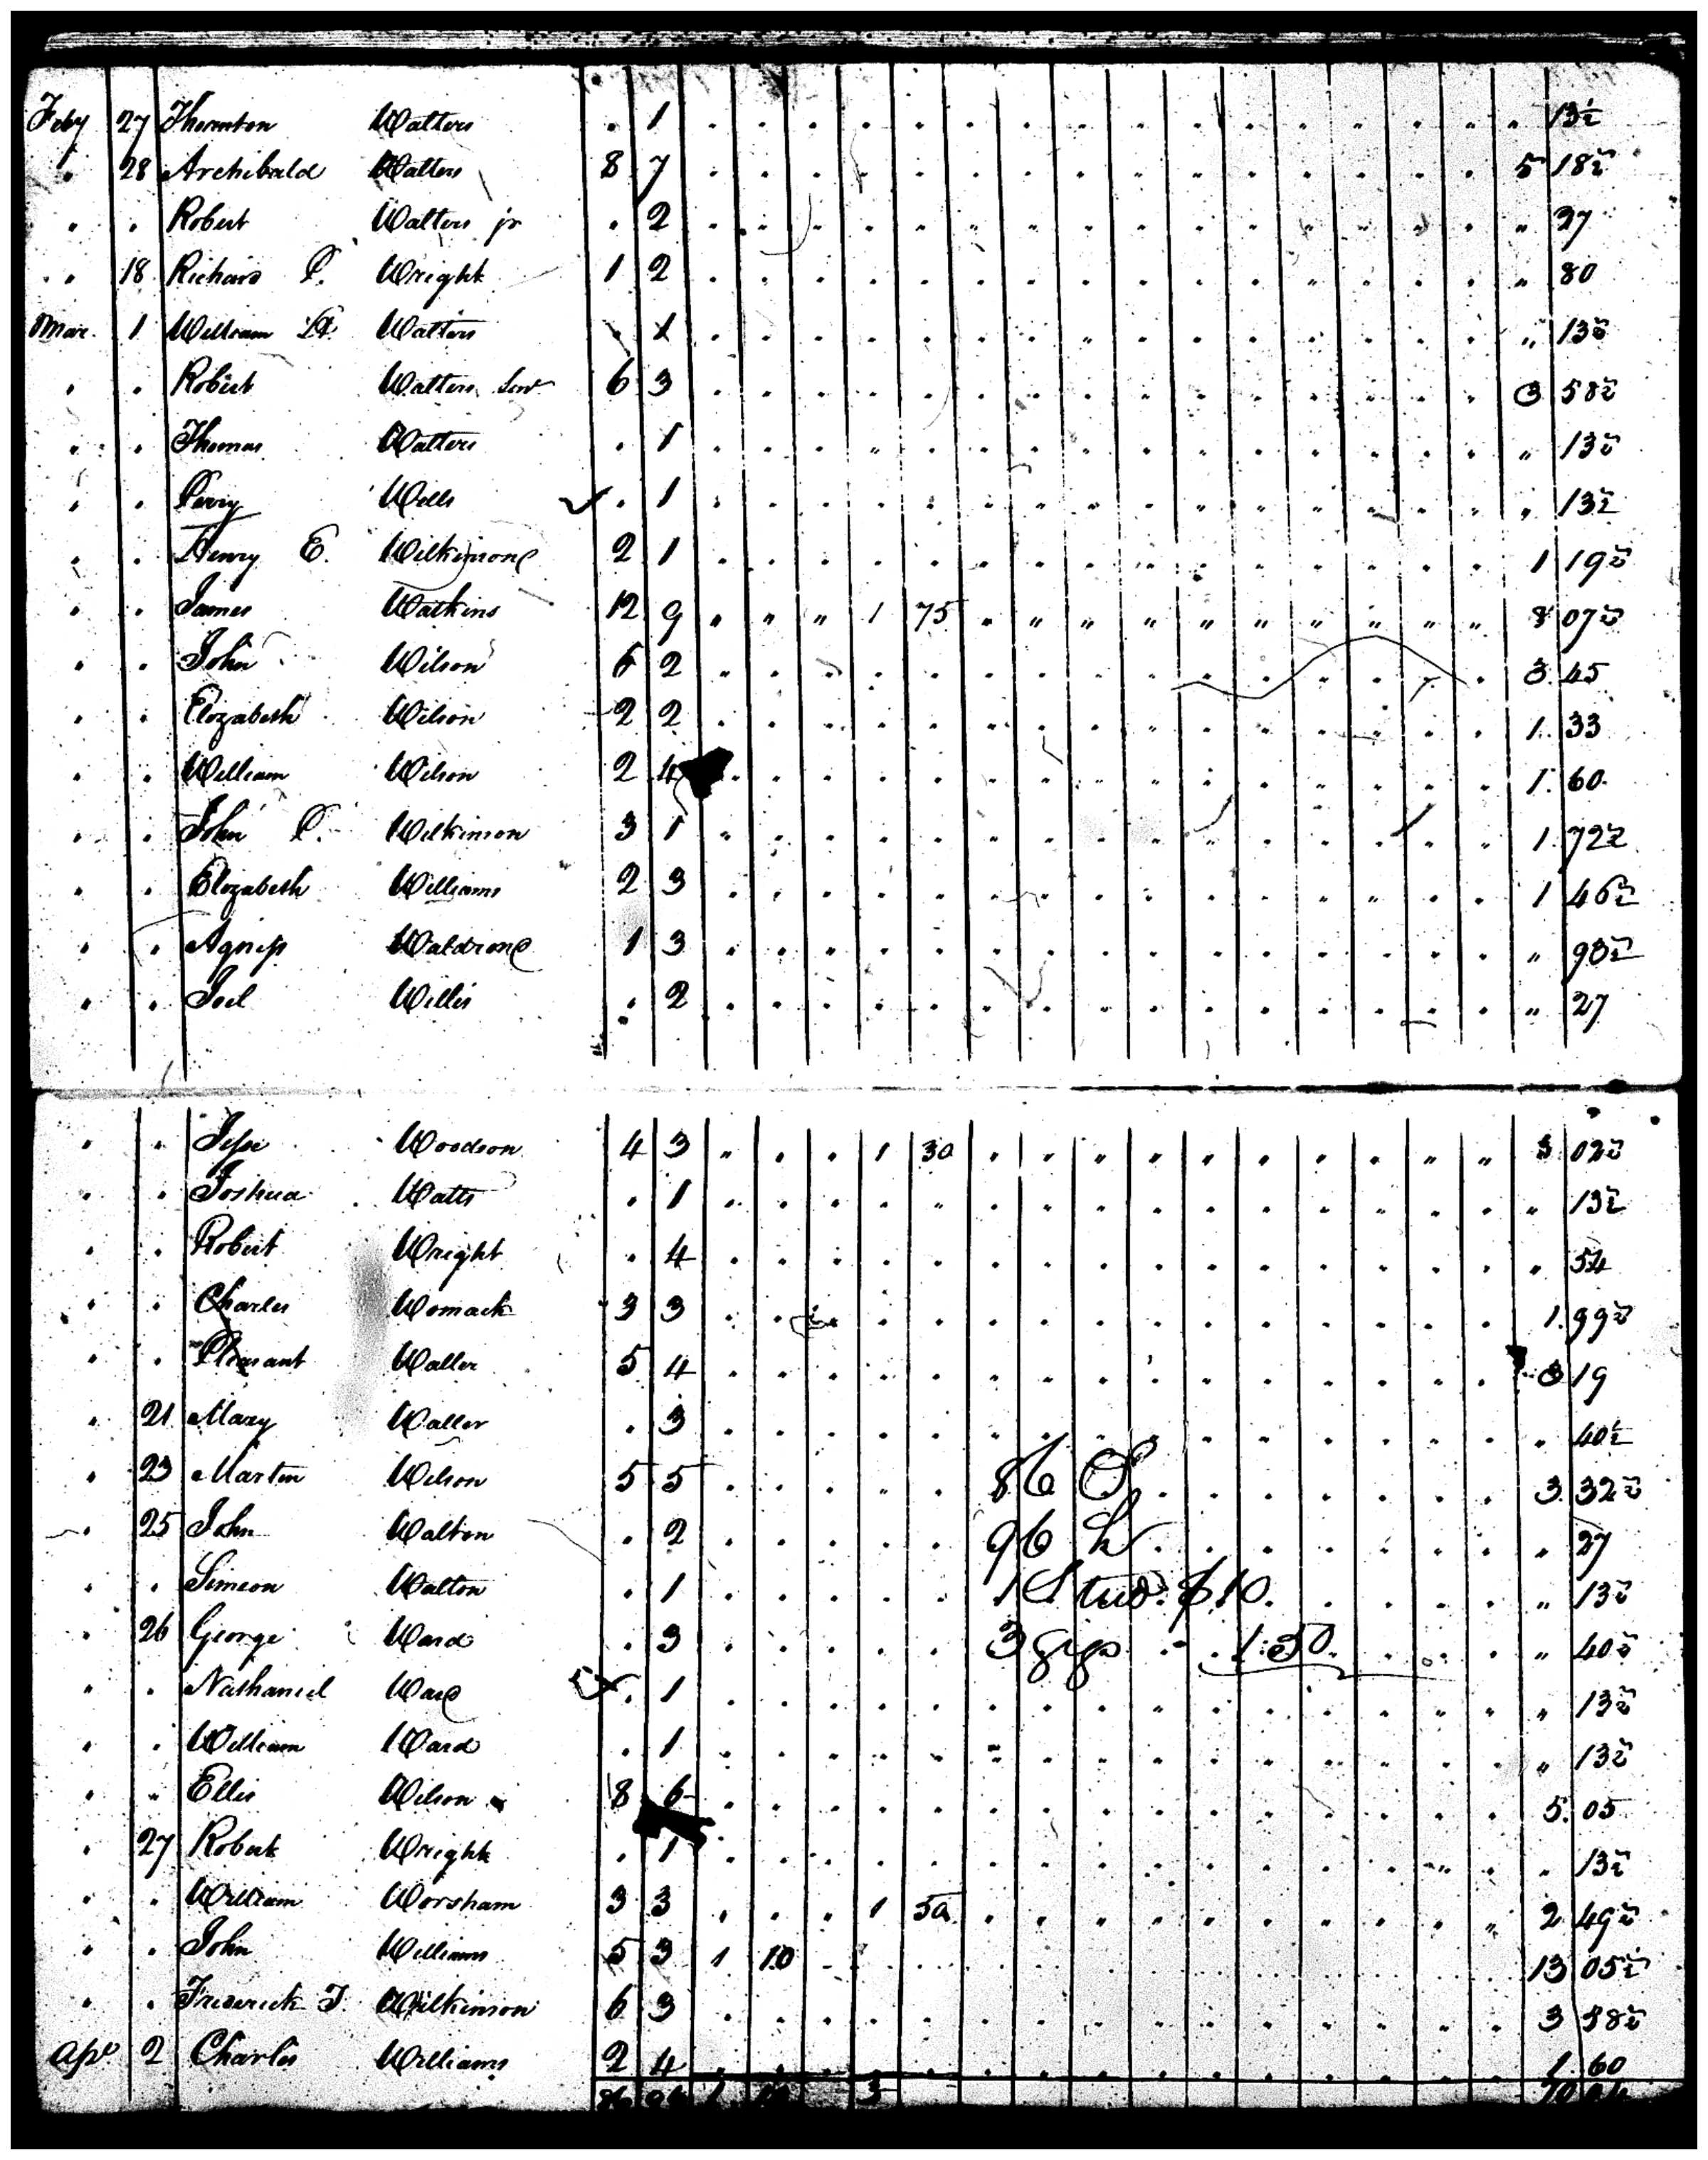 Feby 27 Thornton Watters . 1 . . . . . . . . . . . . . . . " 13½
" 28 Archibald Watters 8 7 . . . . . . . . . . . . . . . 5 18½
" " Robert Watters jr . 2 . . . . . . . . . . . . . . . " 27
" 18 Richard P. Wright 1 2 . . . . . . . . . . . . . . . " 80
Mar. 1 William Watters . 1 . . . . . . . . . . . . . . . " 13½
" " Robert Watters Senr 6 3 . . . . . . . . . . . . . . . 3 58½
" " Thomas Watters . 1 . . . . . . . . . . . . . . . " 13½
" " Perry Wells . 1 . . . . . . . . . . . . . . . " 13½
" " Henry E. Wilkinson 2 1 . . . . . . . . . . . . . . . 1 19½
" " James Watkins 12 9 " " " 1 75 " " " " " " " " " " 8 07½
" " John Wilson 6 2 . . . . . . . . . . . . . . . 3 45
" " Elizabeth Wilson 2 2 . . . . . . . . . . . . . . . 1 33
" " William Wilson 2 4 . . . . . . . . . . . . . . . 1 60
" " John P. Wilkinson 3 1 . . . . . . . . . . . . . . . 1 72½
" " Elizabeth Williams 2 3 . . . . . . . . . . . . . . . 1 46½
" " Agness Waldrone 1 3 . . . . . . . . . . . . . . . " 93½
" " Joel Willis . 2 . . . . . . . . . . . . . . . " 27
" " Jesse Woodson 4 3 " . . 1 30 . . . . . . . . " " 3 02½
" " Joshua Watts . 1 . . . . . . . . . . . . . . . " 13½
" " Robert Wright . 4 . . . . . . . . . . . . . . . " 54
" " Charles Womack 3 3 . . . . . . . . . . . . . . . 1 99½
" " Pleasant Waller 5 4 . . . . . . . . . . . . . . . 3 19
" 21 Mary Waller . 3 . . . . . . . . . . . . . . . " 40½
" 23 Martin Wilson 5 5 . . . . . 86 . . . . . . . 3 32½
" 25 John Walton . 2 . . . . . 96 h . . . . . . . " 27
" " Simeon Walton . 1 . . . . . 1 Stud. $10. . . . . " 13½
" 26 George Ward . 3 . . . . . 3 gigs - 1:50. . . . " 40½
" " Nathaniel Ward . 1 . . . . . . . . . . . . . . . " 13½
" " William Ward . 1 . . . . . . . . . . . . . . . " 13½
" " Ellis Wilson 8 6 . . . . . . . . . . . . . . . 5 05
" 27 Robert Wright . 1 . . . . . . . . . . . . . . . " 13½
" " William Worsham 3 3 . . . 1 50 . . . . . . . . . " 2 49½
" " John Williams 5 3 1 10 . . . . . . . . . . . . . 13 05½
" " Frederick J. Wilkinson 6 3 . . . . . . . . . . . . . . . 3 58½
Apl 2 Charles Williams 2 4 . . . . . . . . . . . . . . . 1 60
86 96 1 10 3